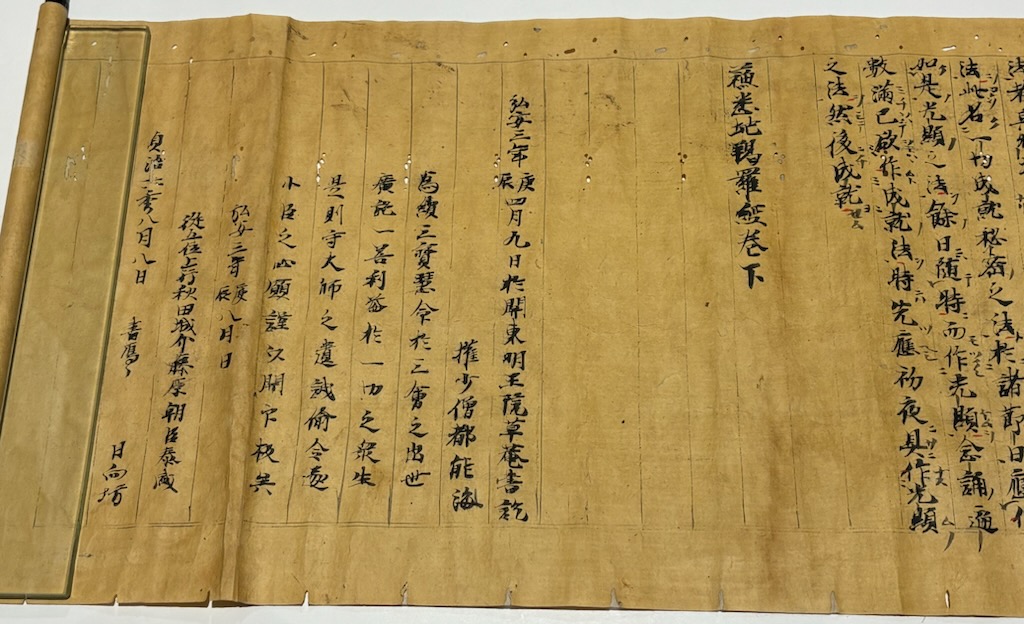 法此名一切成就秘密之法於諸節日應作
如是光顯之法餘日隨時而作光顯念誦遍
數滿已欲作成就法時先應初夜具作光顯
之法然後成就
蘇悉地羯羅經卷下
弘安三年庚辰四月九日於關東明王院草菴書訖
權少僧都能海
為續三寶慧命於三會之出世
廣施一善利益於一切之衆生
是則守大師之遺誡偷令遂
小臣之心願謹以開印板矣
弘安三年庚辰八月日
從五位上行秋田城介藤原朝臣泰盛
貞治二季八月八日 書寫了 日向坊